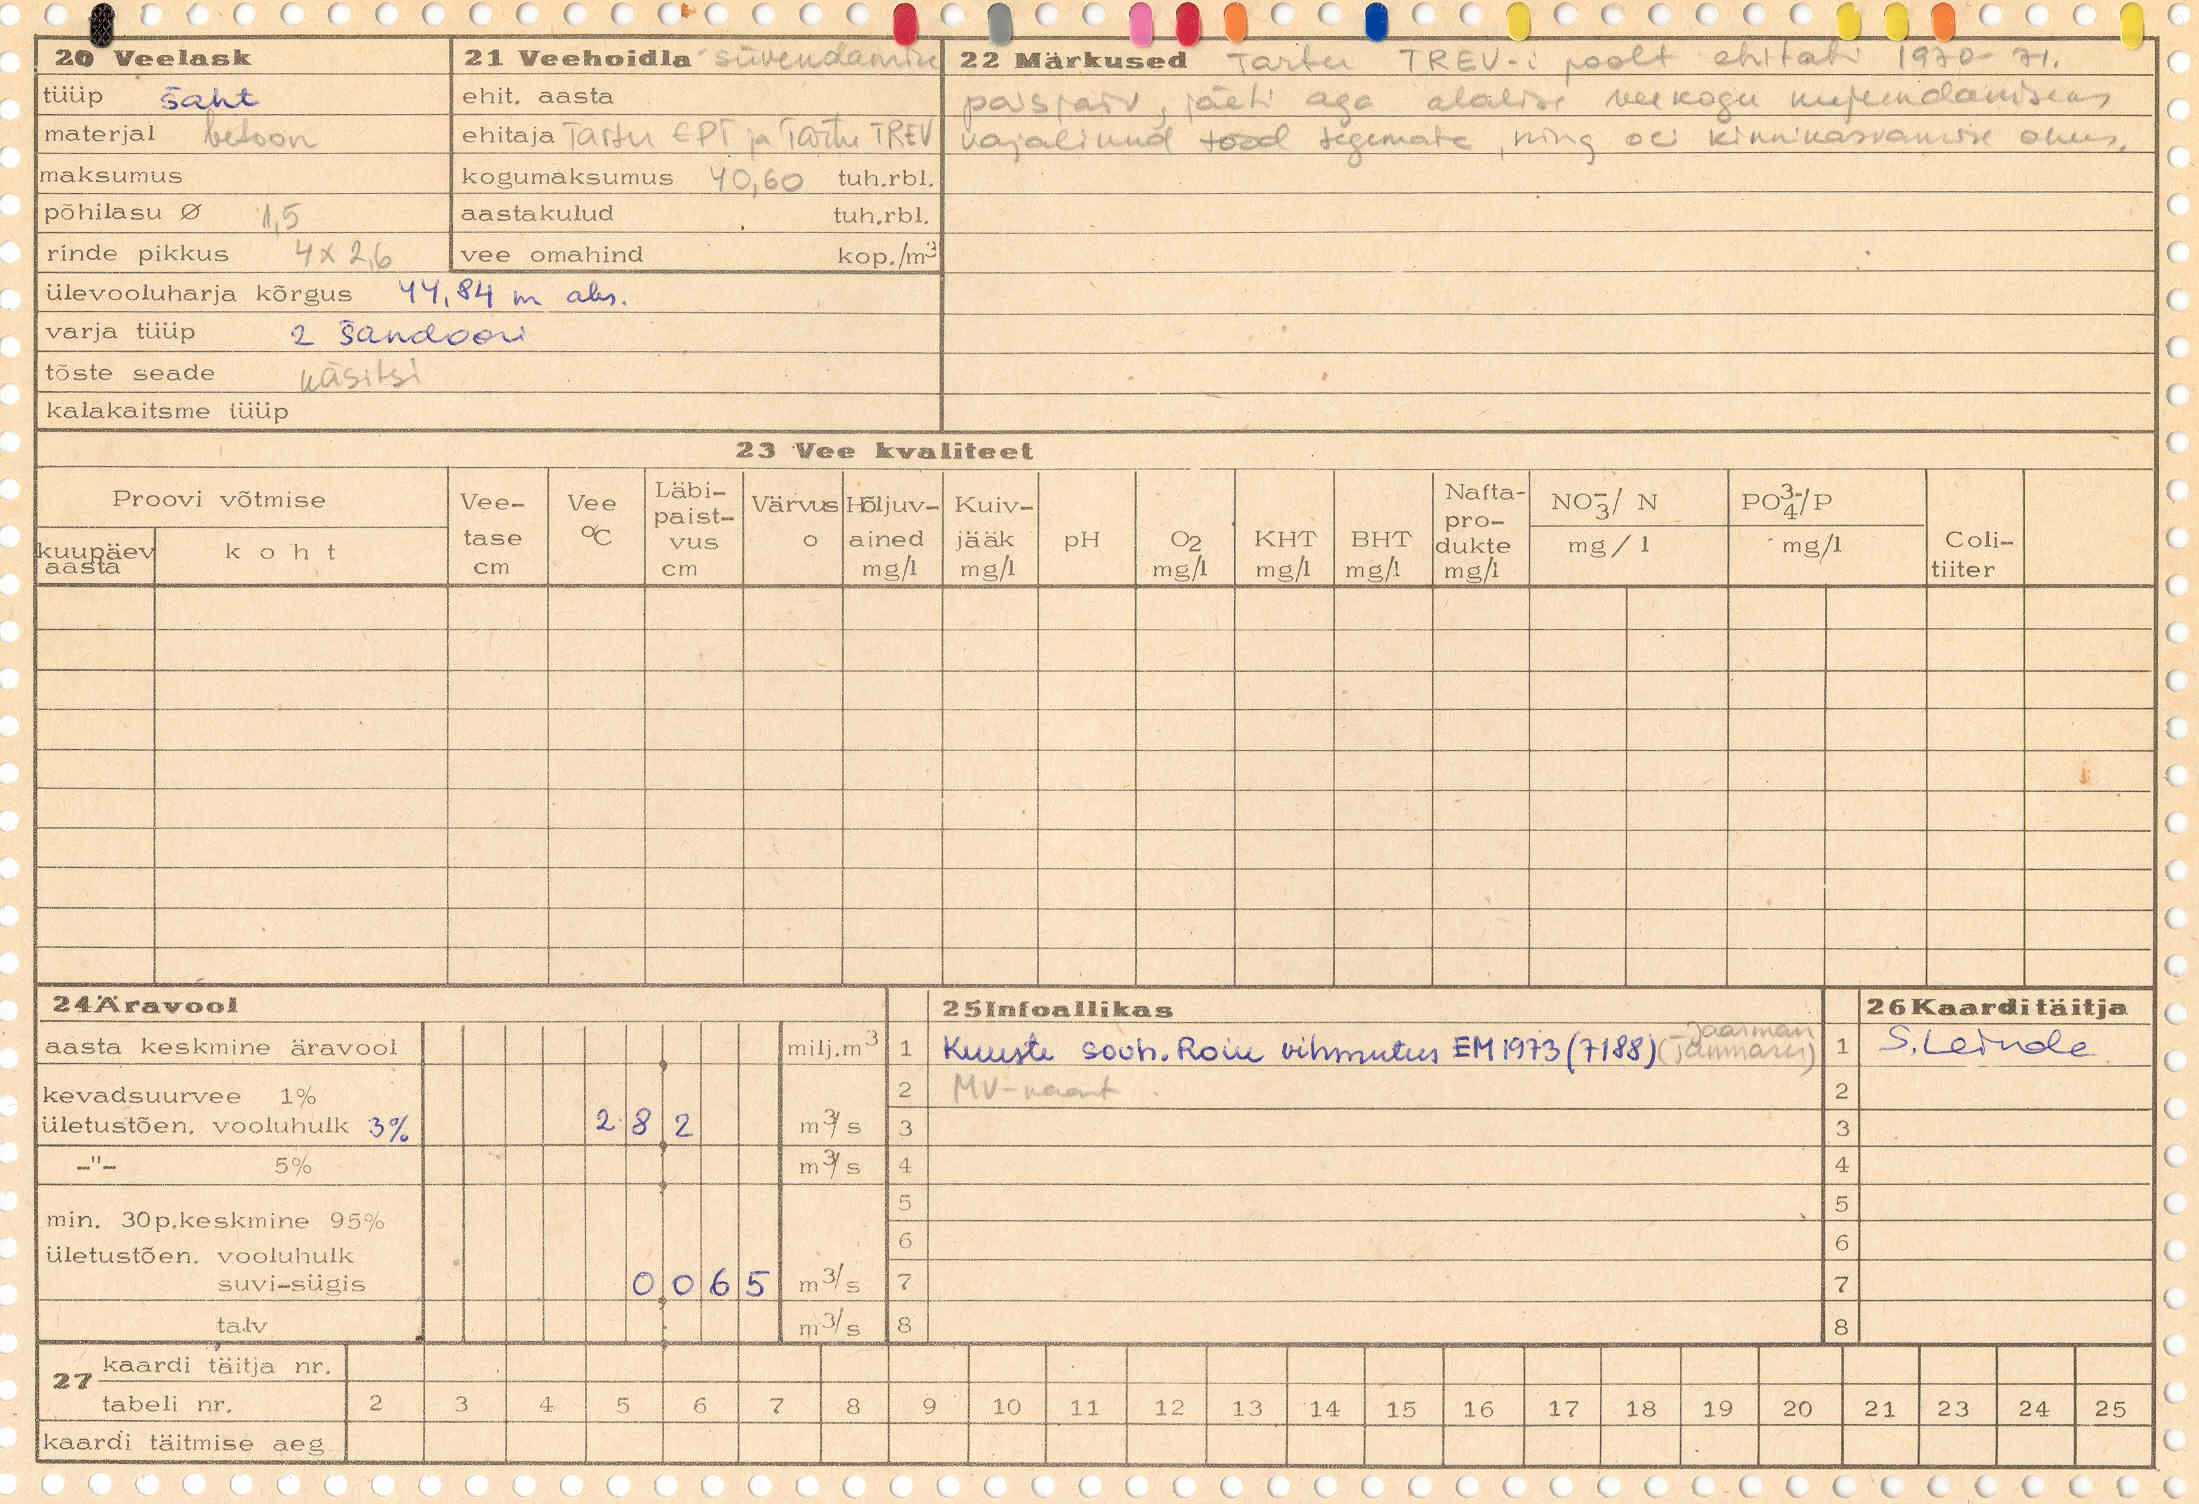 20 Veelask
tüüp šaht
materjal betoon
maksumus
põhilasu Ø 1,5
rinde pikkus 4 x 2,6
ülevooluharja kõrgus 44,84 m abs.
varja tüüp 2 šandoori
tõste seade käsitsi
kalakaitsme tüüp
21 Veehoidla süvendamine
ehit. aasta
ehitaja Tartu EPT ja Tartu TREV
kogumaksumus 40,60 tuh.rbl.
aastakulud tuh.rbl.
vee omahind kop./m3
22 Märkused Tartu TREV-i poolt ehitati 1970-71.
paisjärv, jäeti aga alalise veekogu kujundamiseks
vajalikud tööd tegemata, ning oli kinnikasvamise ohus.
23 Vee kvaliteet
Proovi võtmise
kuupäev aasta
koht
Vee-tase cm
Vee °C
Läbi-paist-vus cm
Värvus o
Hõljuv-ained mg/l
Kuiv-jääk mg/l
pH
O2 mg/l
KHT mg/l
BHT mg/l
Nafta-pro-dukte mg/l
NO3-/ N mg/l
PO43-/P mg/l
Coli-tiiter
24 Äravool
aasta keskmine äravool milj.m3
kevadsuurvee 1%
ületustõen. vooluhulk 3% 2 8 2 m3/s
-"- 5% m3/s
min. 30p.keskmine 95%
ületustõen. vooluhulk
suvi-sügis 0 0 6 5 m3/s
talv m3/s
25 Infoallikas
1 Kuuste sovh. Roiu vihmutus EM 1973 (7188)
2 MV-kaart
3
4
5
6
7
8
26 Kaarditäitja
1 S. Leinde
2
3
4
5
6
7
8
27 kaardi täitja nr.
tabeli nr. 2 3 4 5 6 7 8 9 10 11 12 13 14 15 16 17 18 19 20 21 23 24 25
kaardi täitmise aeg